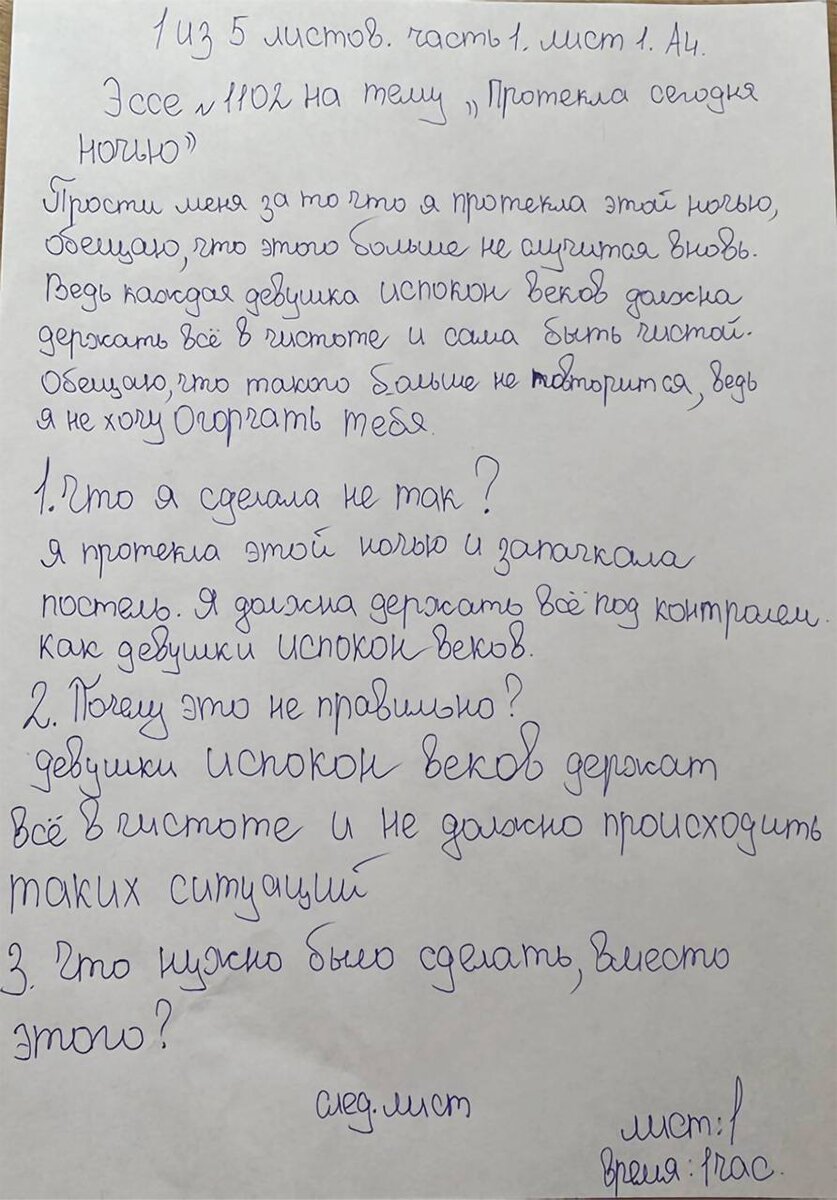 1 из 5 листов. часть 1. лист 1. А4.
Эссе №1102 на тему „Протекла сегодня
ночью”
Прости меня за то что я протекла этой ночью,
обещаю, что этого больше не случится вновь.
Ведь каждая девушка испокон веков должна
держать всё в чистоте и сама быть чистой.
Обещаю, что такого больше не повторится, ведь
я не хочу Огорчать тебя.
1. Что я сделала не так?
я протекла этой ночью и запачкала
постель. Я должна держать всё под контролем.
как девушки испокон веков.
2. Почему это не правильно?
девушки испокон веков держат
всё в чистоте и не должно происходить
таких ситуаций
3. Что нужно было сделать, вместо
этого?
след. лист
лист: 1
время: 1 час.